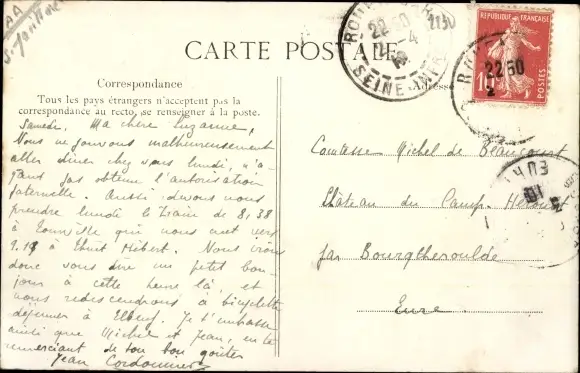 AA
CARTE POSTALE
Correspondance
Tous les pays étrangers n'acceptent pas la
correspondance au recto, se renseigner à la poste.
Samedi. Ma chère Suzanne,
Nous ne pouvons malheureusement
aller dîner chez vous lundi, n'a-
yant pas obtenu l'autorisation
paternelle. Aussi devons nous
prendre lundi le train de 8.38
à Tourville qui nous met vers
9.18 à Thuit Hébert. Nous irons
donc vous dire un petit bon-
jour à cette heure là, et
nous redescendrons à bicyclette
déjeuner à Elbeuf. Je t'embrasse
ainsi que Michel et Jean, en te
remerciant de ton bon goûter
Jean Cordonnier
Adresse
Comtesse Michel de Beaucourt
Château du Camp. Hérout
par Bourgtheroulde
Eure.
RÉPUBLIQUE FRANÇAISE
10
POSTES
22 50
ROUEN GARE
22 50
SEINE INFRE
2130
EURE